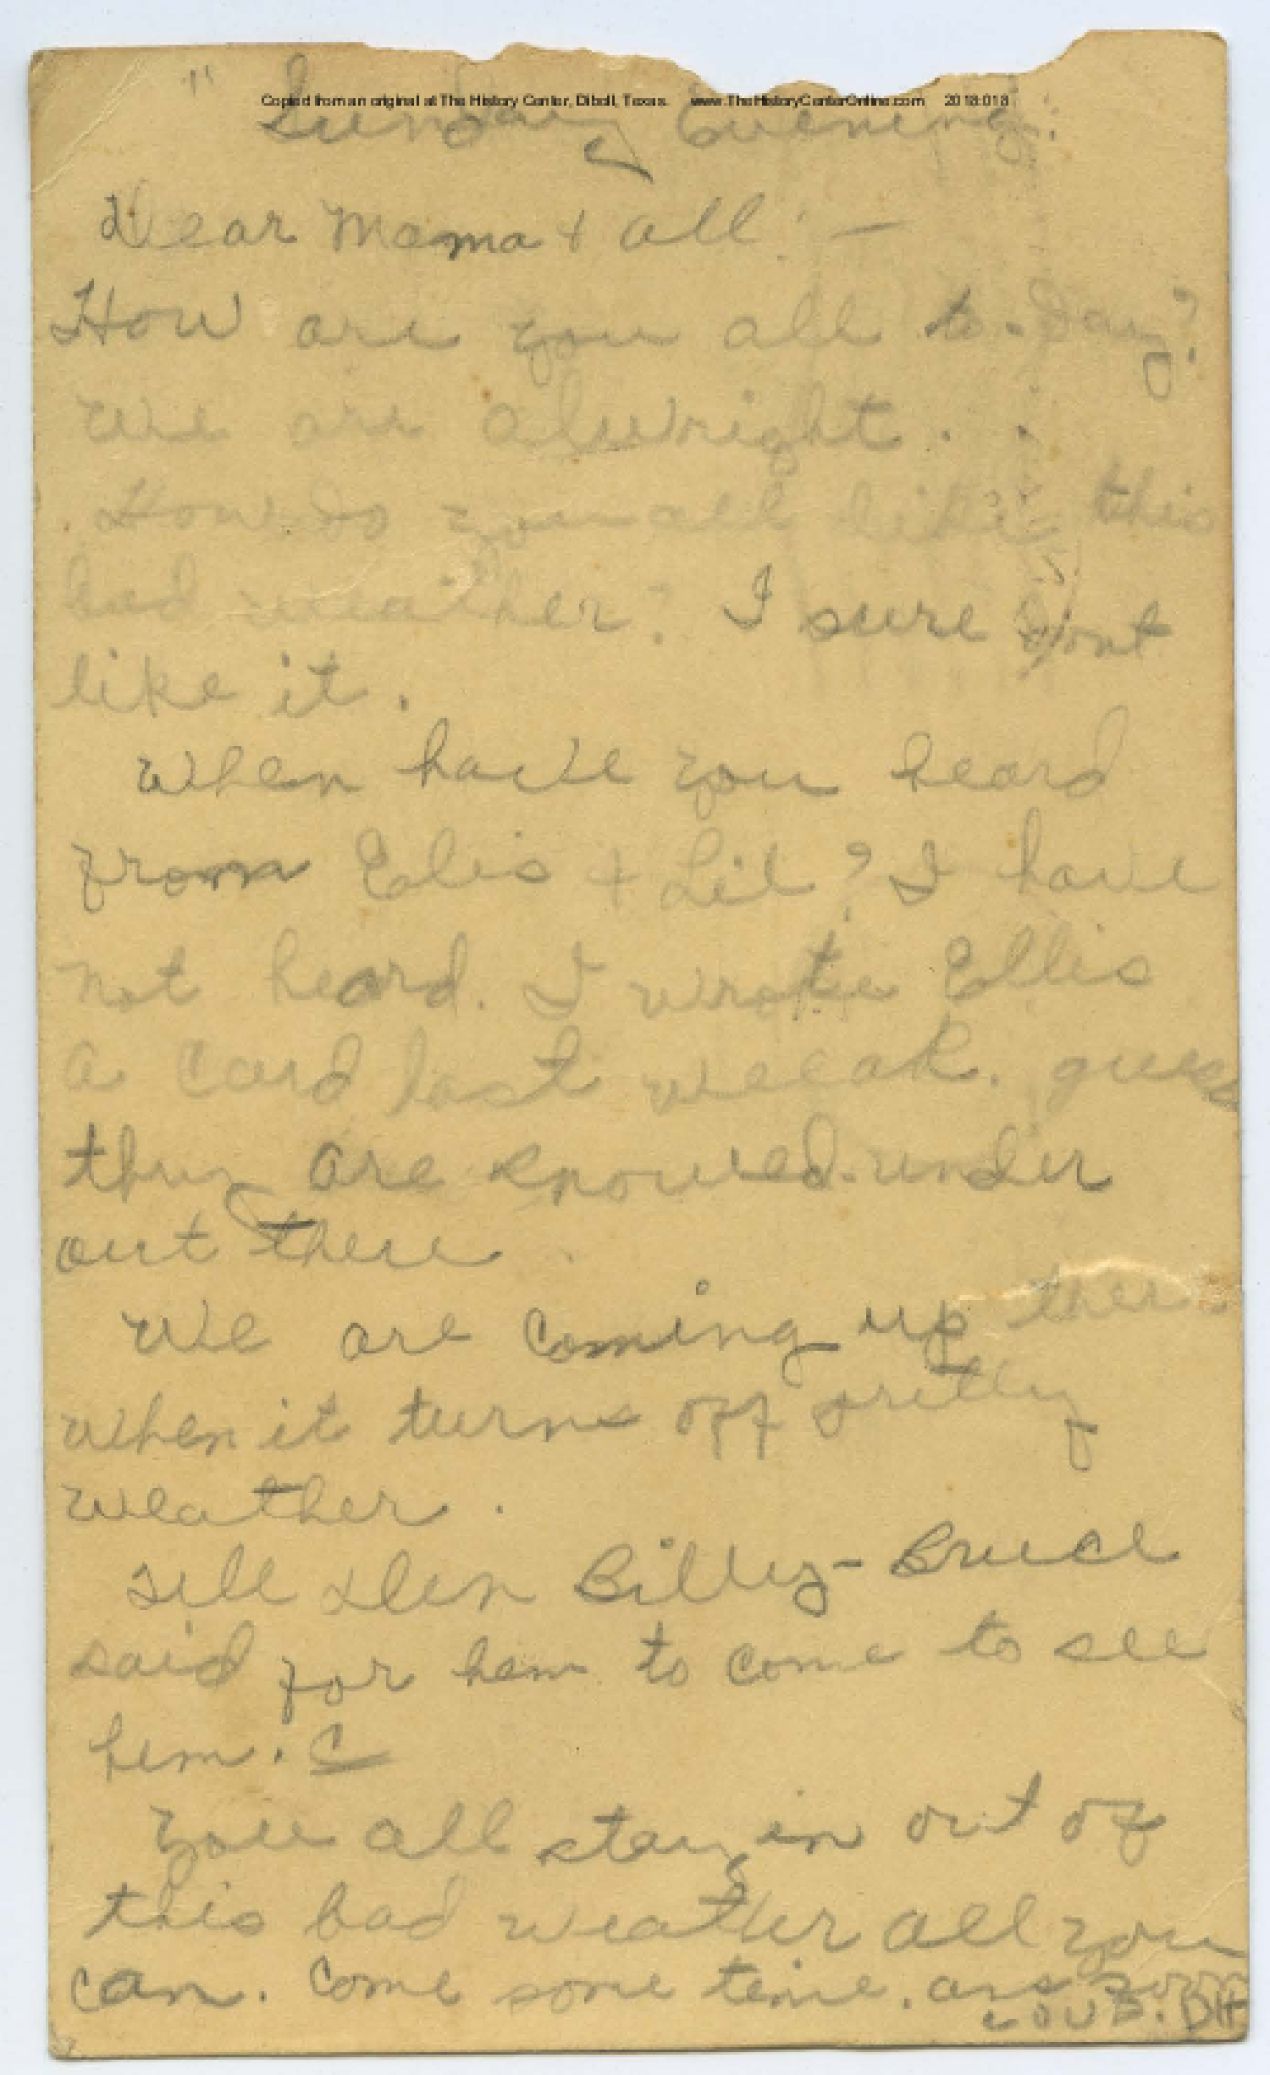 " Sunday Evening.
Copied from an original at The History Center, Diboll, Texas. www.TheHistoryCenterOnline.com 2018:018
Dear Mama & all: —
How are you all to-day?
We are allwright.
How do you all like this
bad weather? I sure dont
like it.
When have you heard
from Elis & Lil? I have
not heard. I wrote Ellis
a card last weeak. guess
they are snowed-under
out there
We are coming up there
when it turns off pretty
weather.
Tell Glen Billy-Bruce
said for hem to come to see
hem.
You all stay in out of
this bad weather all you
can. Come some time. ans
Love.